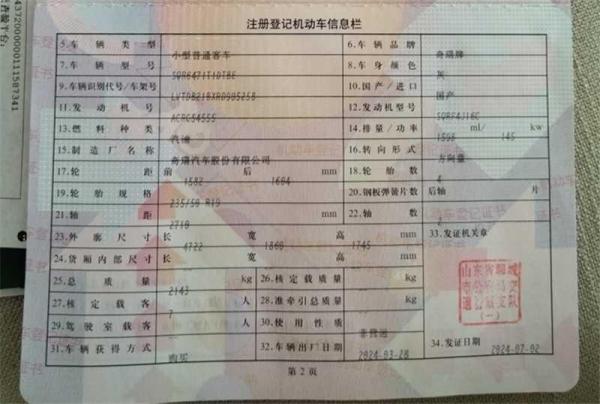 注册登记机动车信息栏
5.车辆类型 小型普通客车 6.车辆品牌 奇瑞牌
7.车辆型号 SQR6471T1DTBE 8.车身颜色 灰
9.车辆识别代号/车架号 10.国产/进口 国产
11.发动机号 ACRC54555 12.发动机型号 SQRF4J16C
13.燃料种类 汽油 14.排量/功率 1598 ml/ 145 kw
15.制造厂名称 奇瑞汽车股份有限公司 16.转向形式 方向盘
17.轮距 前 1582 后 1604 mm 18.轮胎数 4
19.轮胎规格 235/50 R19 20.钢板弹簧片数 后轴 片
21.轴距 2710 mm 22.轴数
23.外廓尺寸 长 4722 宽 1860 高 1745 mm 33.发证机关章
24.货厢内部尺寸 长 宽 高 mm
25.总质量 2143 kg 26.核定载质量 kg
27.核定载客 7 人 28.准牵引总质量 kg
29.驾驶室载客 人 30.使用性质 非营运
31.车辆获得方式 购买 32.车辆出厂日期 2024-03-28 34.发证日期 2024-07-02
第2页